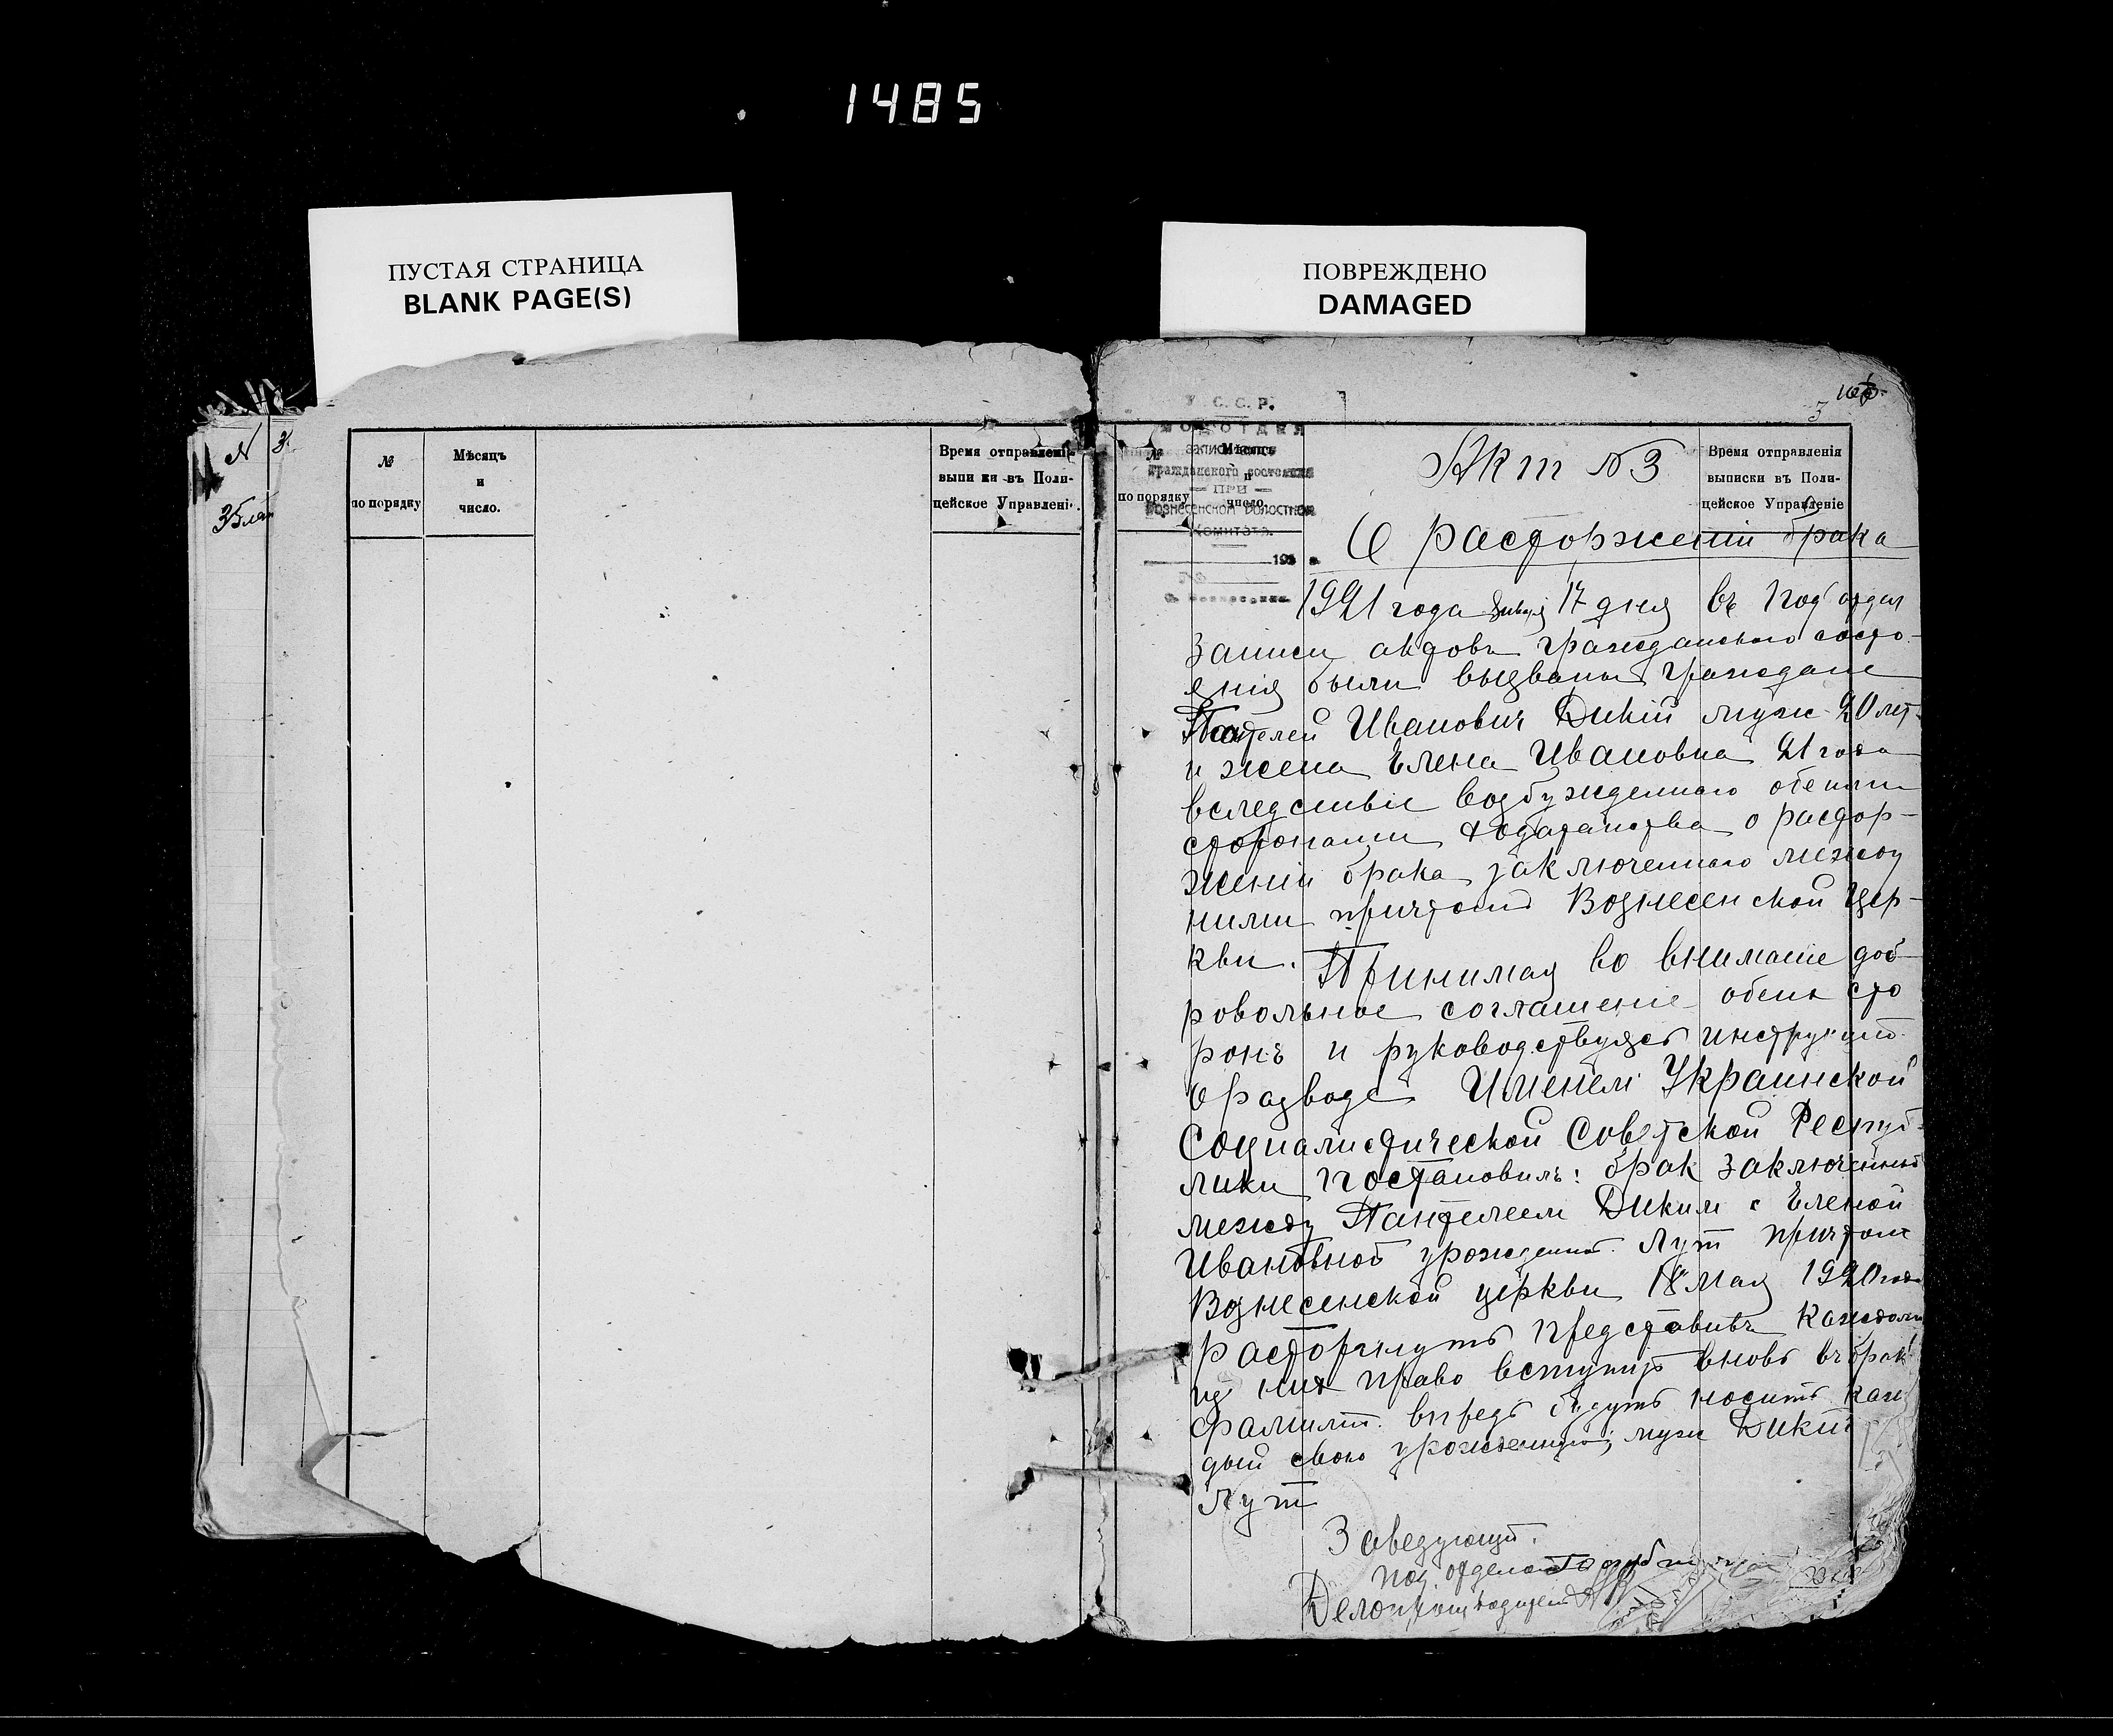 1485
ПУСТАЯ СТРАНИЦА
BLANK PAGE(S)
ПОВРЕЖДЕНО
DAMAGED
N 3
№
по порядку
Мѣсяцъ
и
число.
Время отправленія
выписки въ Поли-
цейское Управленіе.
У. С. С. Р.
ПОДОТДЕЛ
гражданского состояния
— ПРИ —
Вознесенском Волостном
Комитете.
192 г.
№
№
по порядку
Мѣсяцъ
и
число.
Время отправленія
выписки въ Поли-
цейское Управленіе
3
Акт № 3
О расторженіи брака
1921 года Января 17 дня въ под отдел
Записи актовъ гражданского состо-
янія были вызваны граждане
Пантелей Иванович Дикій муж 20 лет
и жена Елена Ивановна 21 года
вследствіе возбужденного обеими
сторонами ходатайства о растор-
женіи брака заключенного между
ними причтом Вознесенской Цер-
кви. Принимая во вниманіе доб-
ровольное соглашеніе обеих сто
ронъ и руководствуясь инструкціей
о разводе Именем Украинской
Социалистической Советской Респуб-
лики постановилъ: брак заключенный
между Пантелеем Диким с Еленой
Ивановной урожденной Лут причтом
Вознесенской церкви 18 Мая 1920 года
Расторгнуть представивъ каждому
из них право вступить вновь въ брак
фамиліи впредь будут носить каж
дый свою урожденную; муж Дикій
Лут
Заведующій
под. отделом
Делопроизводитель